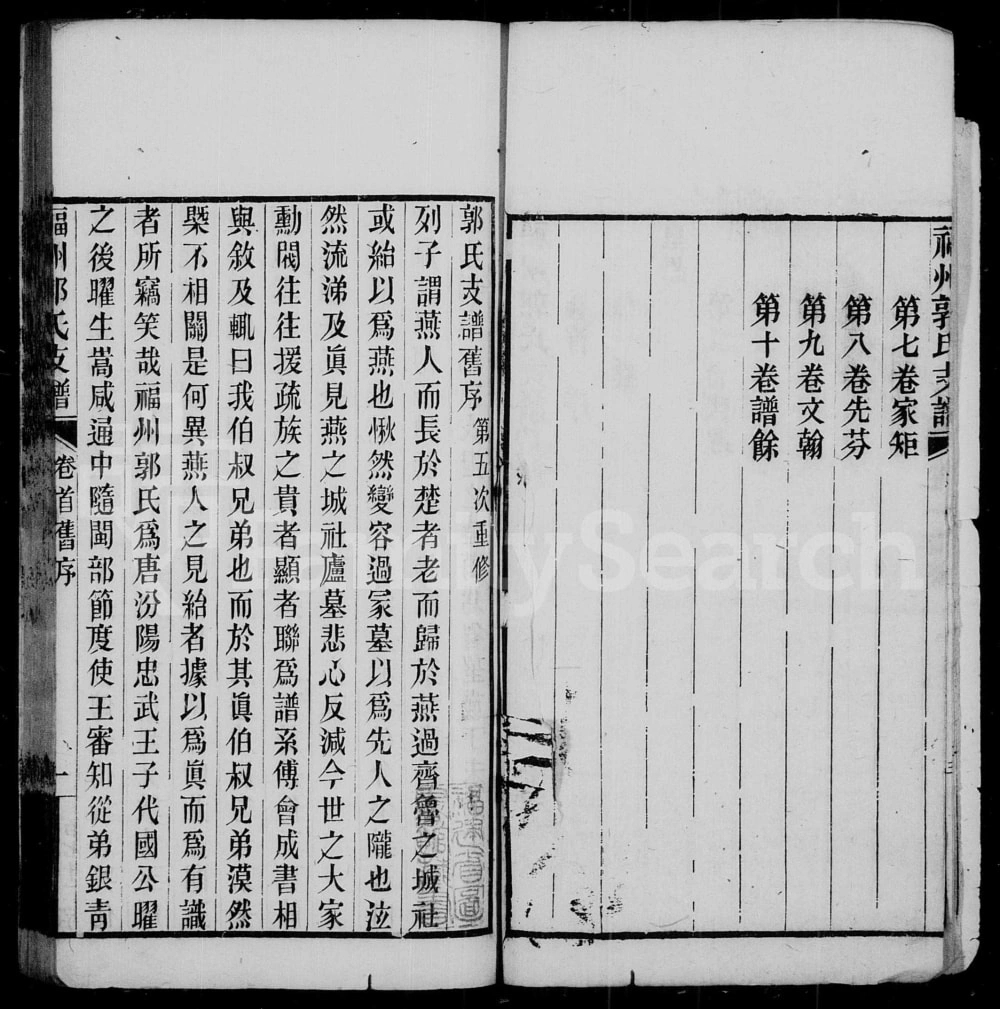 福州郭氏支譜
第七卷家矩
第八卷先芬
第九卷文翰
第十卷譜餘
郭氏支譜舊序 第五次重修
列子謂燕人而長於楚者老而歸於燕過齊魯之城社
或紿以爲燕也愀然變容過冢墓以爲先人之隴也泣
然流涕及眞見燕之城社廬墓悲心反減今世之大家
勳閥往往援疏族之貴者顯者聯爲譜系傅會成書相
與敘及輒曰我伯叔兄弟也而於其眞伯叔兄弟漠然
槩不相關是何異燕人之見紿者據以爲眞而爲有識
者所竊笑哉福州郭氏爲唐汾陽忠武王子代國公曜
之後曜生嵩咸通中隨閩部節度使王審知從弟銀青
福州郭氏支譜 卷首舊序 一
FamilySearch